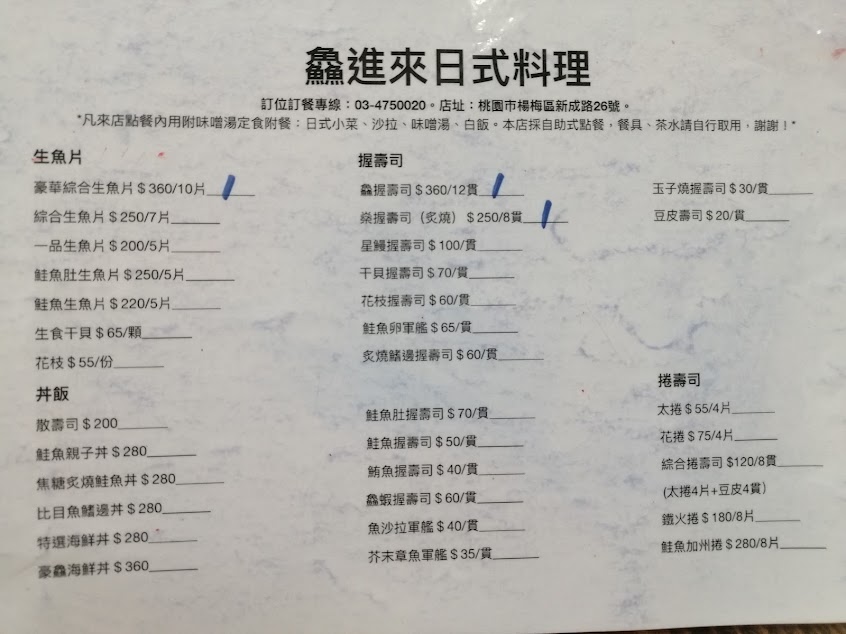 鱻進來日式料理
訂位訂餐專線：03-4750020。店址：桃園市楊梅區新成路26號。
*凡來店點餐內用附味噌湯定食附餐：日式小菜、沙拉、味噌湯、白飯。本店採自助式點餐，餐具、茶水請自行取用，謝謝！*
生魚片
豪華綜合生魚片＄360/10片
綜合生魚片＄250/7片
一品生魚片＄200/5片
鮭魚肚生魚片＄250/5片
鮭魚生魚片＄220/5片
生食干貝＄65/顆
花枝＄55/份
丼飯
散壽司＄200
鮭魚親子丼＄280
焦糖炙燒鮭魚丼＄280
比目魚鰭邊丼＄280
特選海鮮丼＄280
豪鱻海鮮丼＄360
握壽司
鱻握壽司＄360/12貫
燊握壽司（炙燒）＄250/8貫
星鰻握壽司＄100/貫
干貝握壽司＄70/貫
花枝握壽司＄60/貫
鮭魚卵軍艦＄65/貫
炙燒鰭邊握壽司＄60/貫
鮭魚肚握壽司＄70/貫
鮭魚握壽司＄50/貫
鮪魚握壽司＄40/貫
鱻蝦握壽司＄60/貫
魚沙拉軍艦＄40/貫
芥末章魚軍艦＄35/貫
玉子燒握壽司＄30/貫
豆皮壽司＄20/貫
捲壽司
太捲＄55/4片
花捲＄75/4片
綜合捲壽司 $120/8貫
(太捲4片+豆皮4貫)
鐵火捲＄180/8片
鮭魚加州捲＄280/8片